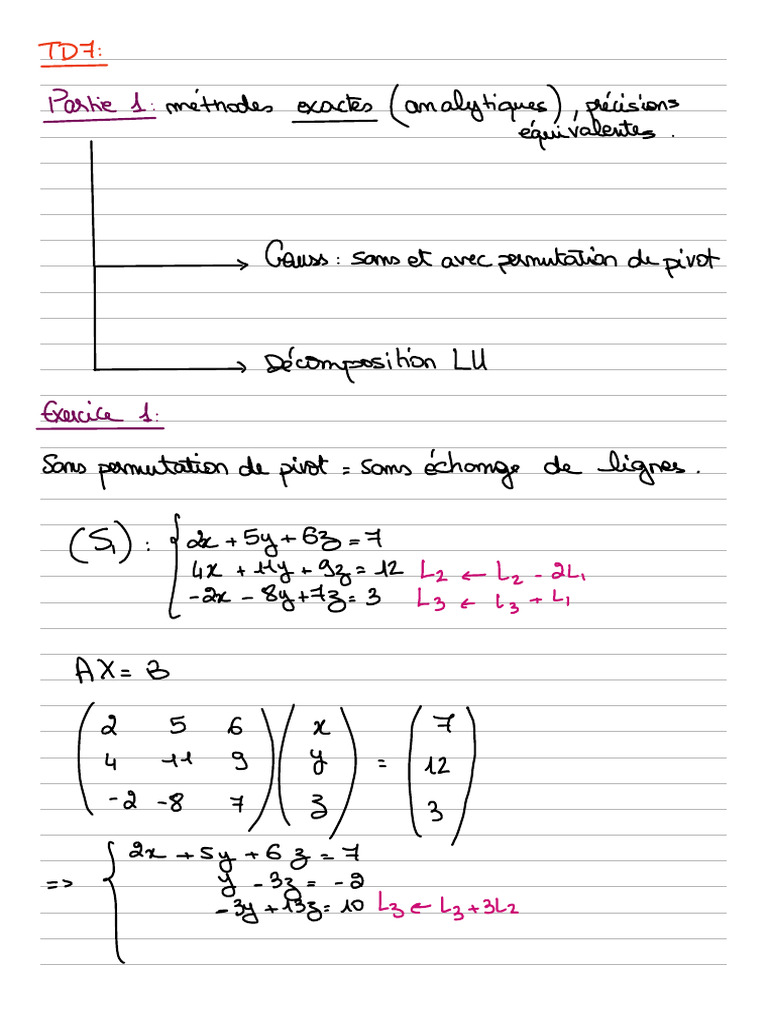 TD7:
Partie 1: méthodes exactes (analytiques), précisions
équivalentes.
Gauss: sans et avec permutation de pivot
Décomposition LU
Exercice 1:
Sans permutation de pivot = sans échange de lignes.
(S₁): { 2x + 5y + 6z = 7
4x + 11y + 9z = 12 L₂ ← L₂ - 2L₁
-2x - 8y + 7z = 3 L₃ ← L₃ + L₁
AX = B
( 2 5 6 ) ( x ) ( 7 )
( 4 11 9 ) ( y ) = ( 12 )
( -2 -8 7 ) ( z ) ( 3 )
=> { 2x + 5y + 6z = 7
y - 3z = -2
-3y + 13z = 10 L₃ ← L₃ + 3L₂